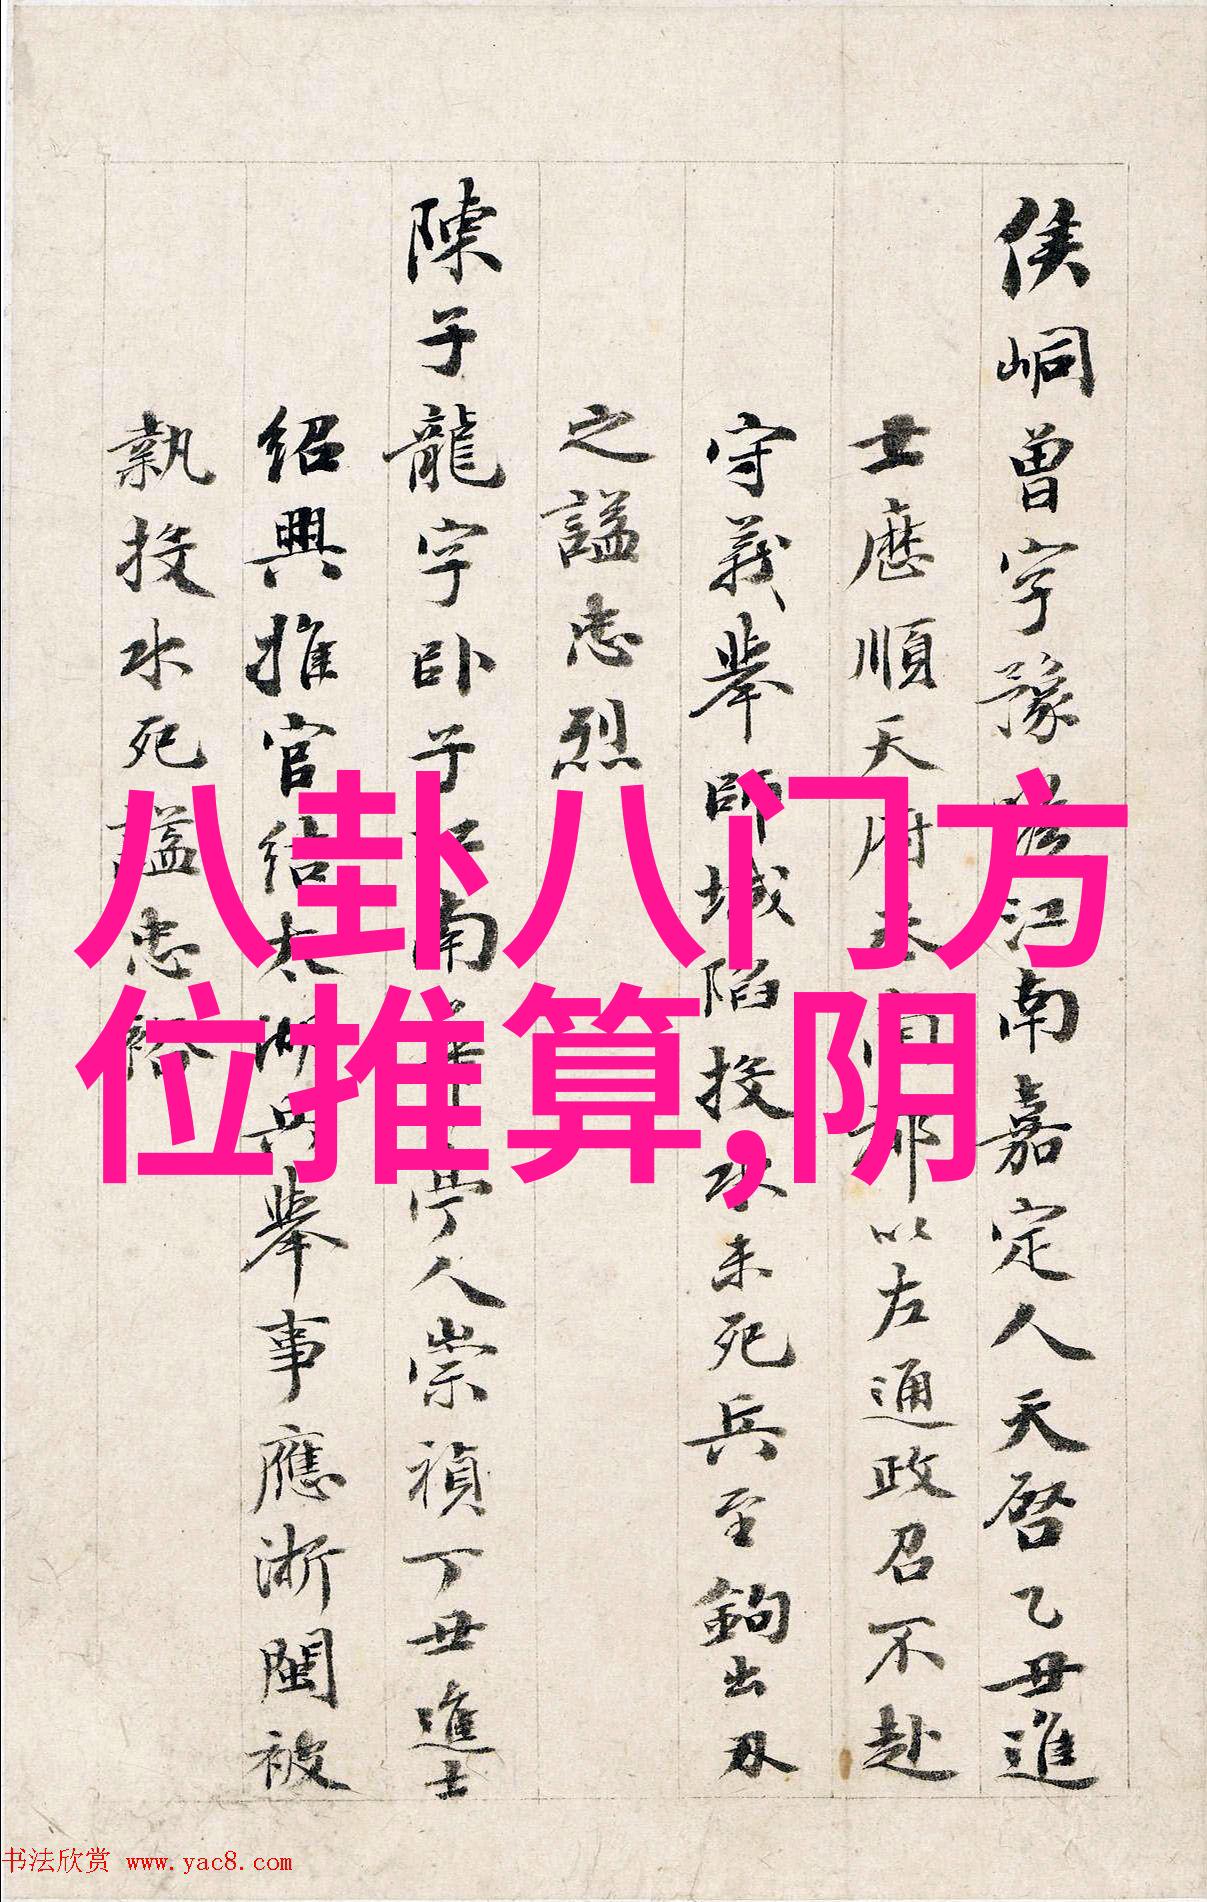 侯峒曾字豫瞻江南嘉定人天啓乙丑進
士應順天府丞都以左通政召不赴
守義舉師城陷投水未死兵至鉤出刃
之謚忠烈
陳子龍字卧子江南華亭人崇禎丁丑進士
紹興推官結太湖兵舉事應浙閩被
執投水死謚忠裕
八卦八门方
位推算,阴
书法欣赏 www.yac8.com